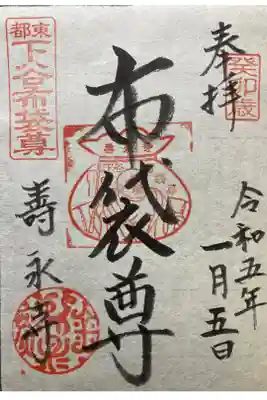 奉拝
癸卯歳
令和五年
一月五日
布袋尊
東都
下谷布袋尊
壽永寺